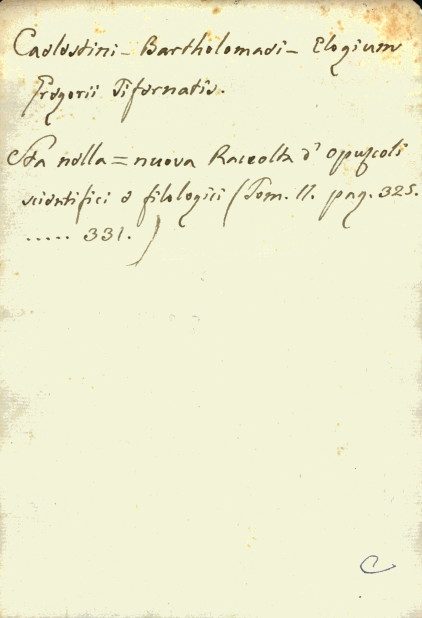 Caelestini - Bartholomaei - Elogium
Gregorii Tifernatis.
Sta nella = nuova Raccolta d' opuscoli
scientifici e filologici (Tom. II. pag. 325.
..... 331.)
C